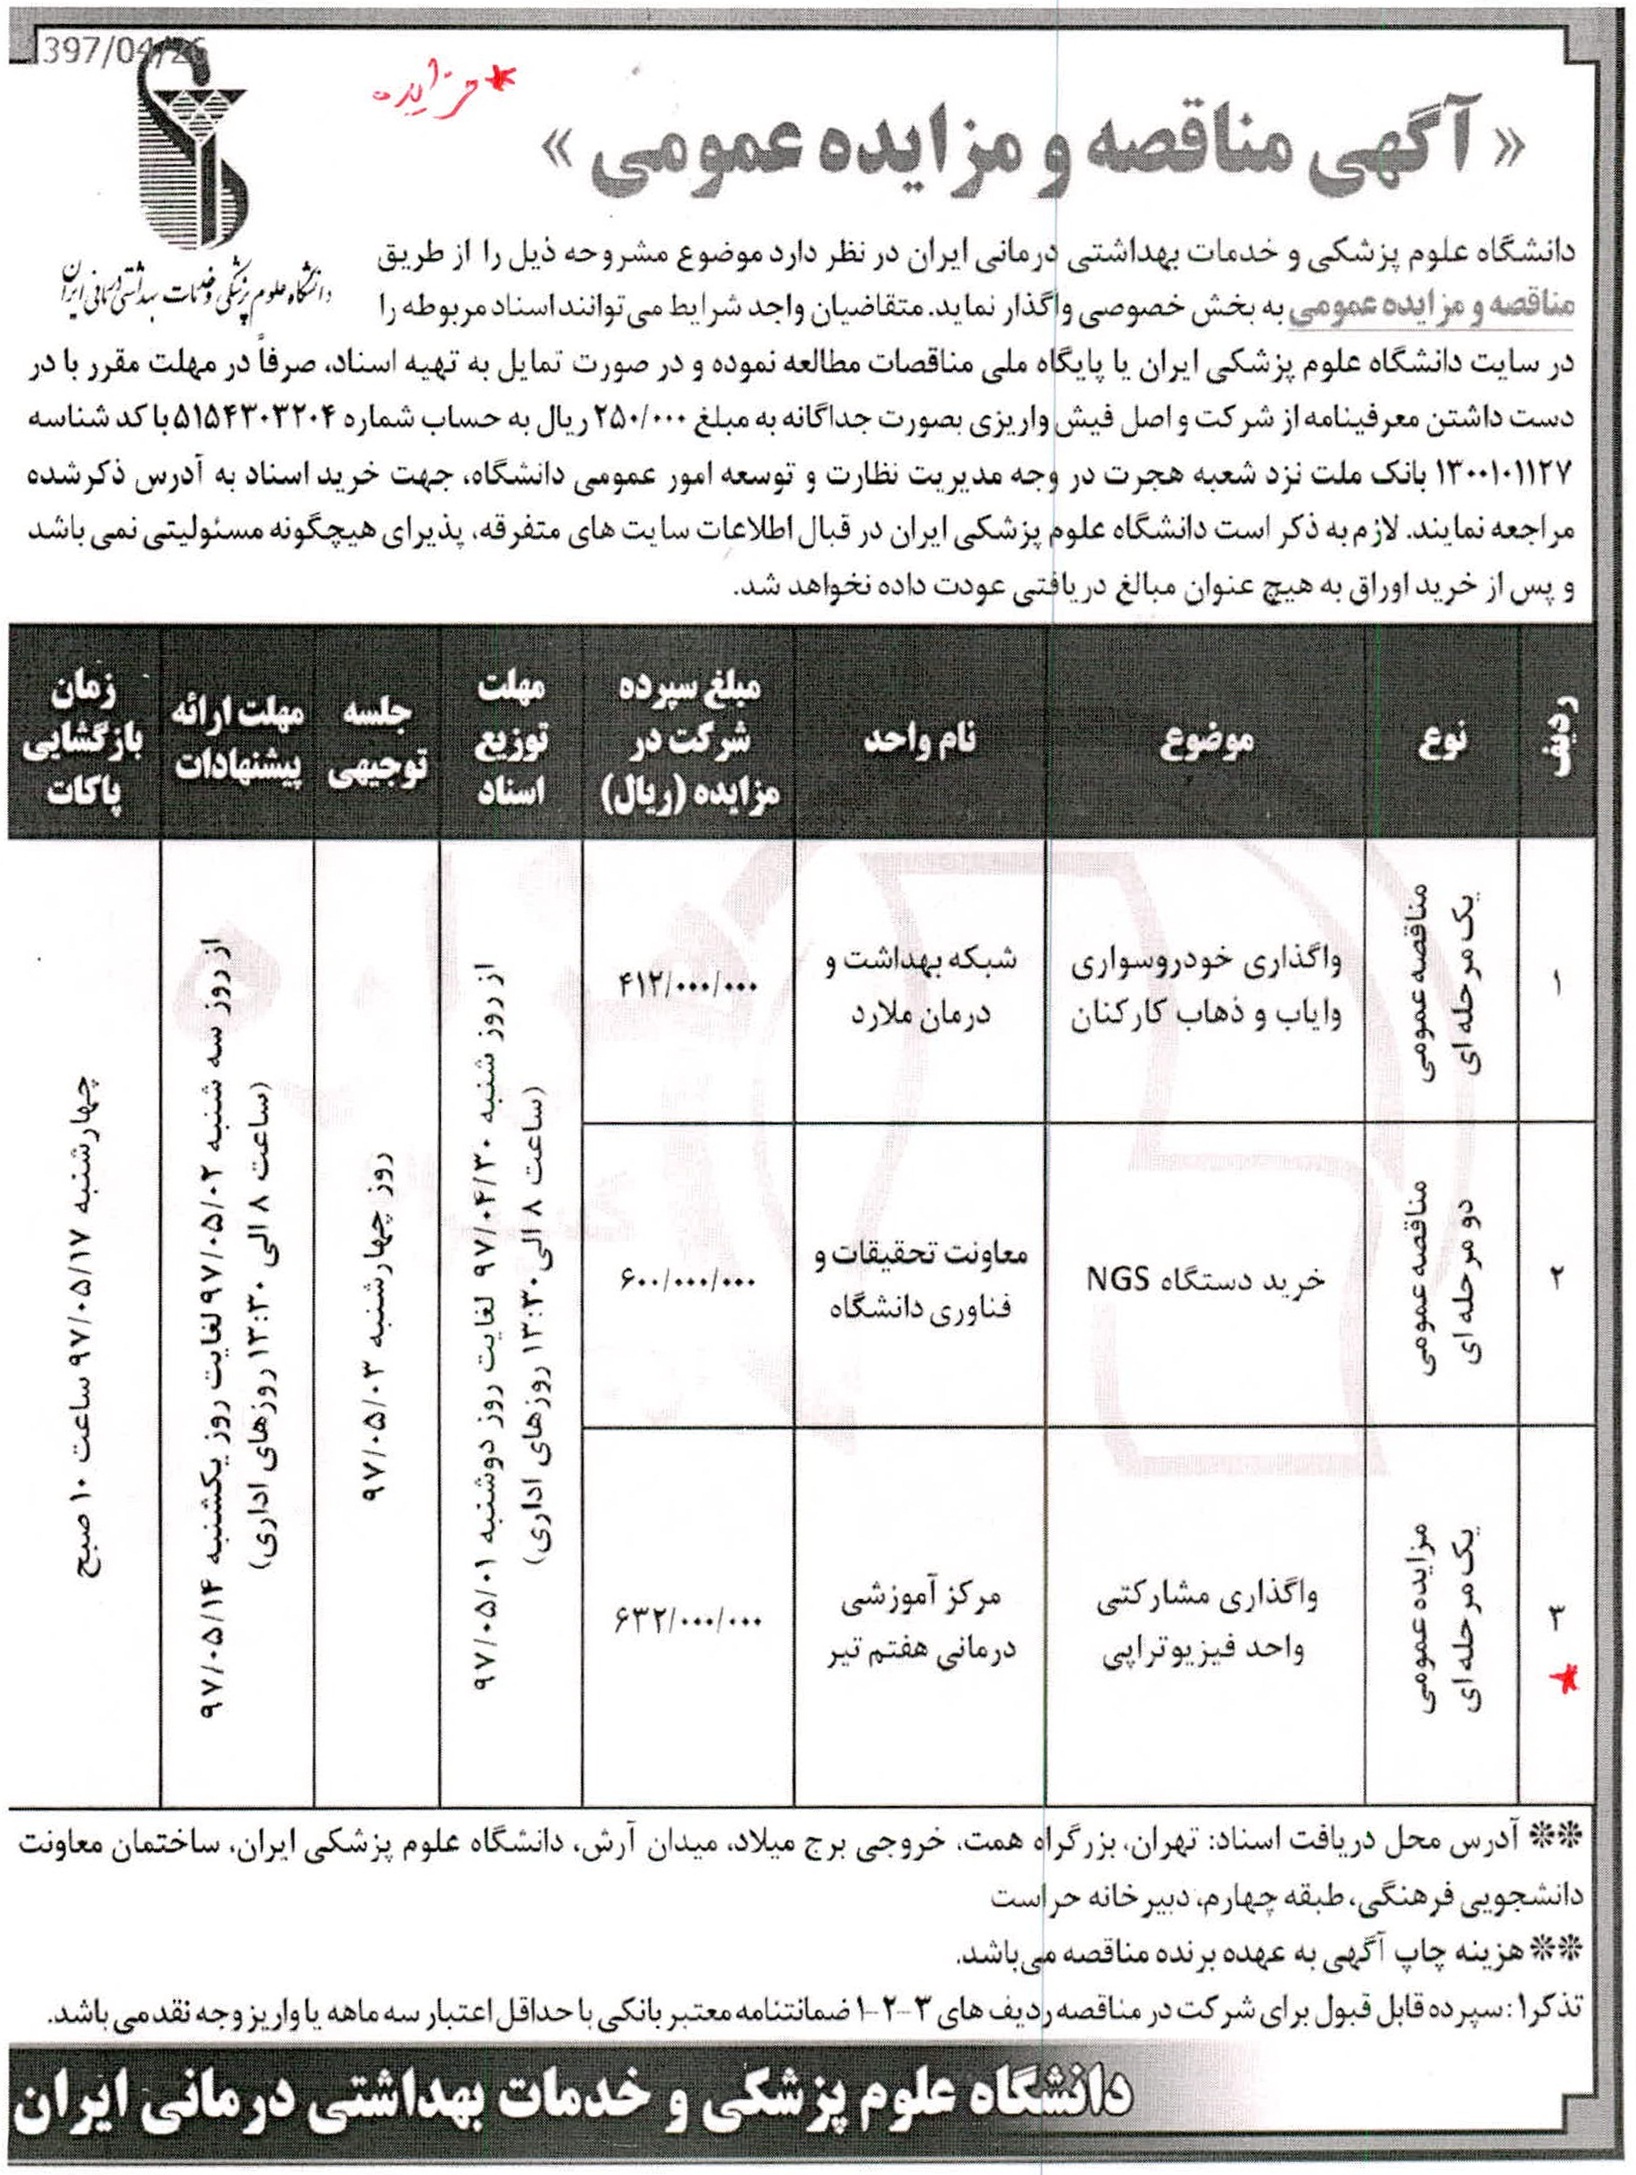 397/04/26
* مزایده
« آگهی مناقصه و مزایده عمومی »
دانشگاه علوم پزشکی و خدمات بهداشتی درمانی ایران
دانشگاه علوم پزشکی و خدمات بهداشتی درمانی ایران در نظر دارد موضوع مشروحه ذیل را از طریق
مناقصه و مزایده عمومی به بخش خصوصی واگذار نماید. متقاضیان واجد شرایط می‌توانند اسناد مربوطه را
در سایت دانشگاه علوم پزشکی ایران یا پایگاه ملی مناقصات مطالعه نموده و در صورت تمایل به تهیه اسناد، صرفاً در مهلت مقرر با در
دست داشتن معرفینامه از شرکت و اصل فیش واریزی بصورت جداگانه به مبلغ ۲۵۰/۰۰۰ ریال به حساب شماره ۵۱۵۴۳۰۳۲۰۴ با کد شناسه
۱۳۰۰۱۰۱۱۲۷ بانک ملت نزد شعبه هجرت در وجه مدیریت نظارت و توسعه امور عمومی دانشگاه، جهت خرید اسناد به آدرس ذکرشده
مراجعه نمایند. لازم به ذکر است دانشگاه علوم پزشکی ایران در قبال اطلاعات سایت های متفرقه، پذیرای هیچگونه مسئولیتی نمی باشد
و پس از خرید اوراق به هیچ عنوان مبالغ دریافتی عودت داده نخواهد شد.
ردیف
نوع
موضوع
نام واحد
مبلغ سپرده
شرکت در
مزایده (ریال)
مهلت
توزیع
اسناد
جلسه
توجیهی
مهلت ارائه
پیشنهادات
زمان
بازگشایی
پاکات
۱
مناقصه عمومی
یک مرحله ای
واگذاری خودروسواری
وایاب و ذهاب کارکنان
شبکه بهداشت و
درمان ملارد
۴۱۲/۰۰۰/۰۰۰
از روز شنبه ۹۷/۰۴/۳۰ لغایت روز دوشنبه ۹۷/۰۵/۰۱
(ساعت ۸ الی ۱۳:۳۰ روزهای اداری)
روز چهارشنبه ۹۷/۰۵/۰۳
از روز سه شنبه ۹۷/۰۵/۰۲ لغایت روز یکشنبه ۹۷/۰۵/۱۴
(ساعت ۸ الی ۱۳:۳۰ روزهای اداری)
چهارشنبه ۹۷/۰۵/۱۷ ساعت ۱۰ صبح
۲
مناقصه عمومی
دو مرحله ای
خرید دستگاه NGS
معاونت تحقیقات و
فناوری دانشگاه
۶۰۰/۰۰۰/۰۰۰
۳
*
مزایده عمومی
یک مرحله ای
واگذاری مشارکتی
واحد فیزیوتراپی
مرکز آموزشی
درمانی هفتم تیر
۶۳۲/۰۰۰/۰۰۰
** آدرس محل دریافت اسناد: تهران، بزرگراه همت، خروجی برج میلاد، میدان آرش، دانشگاه علوم پزشکی ایران، ساختمان معاونت
دانشجویی فرهنگی، طبقه چهارم، دبیرخانه حراست
** هزینه چاپ آگهی به عهده برنده مناقصه می‌باشد.
تذکر۱: سپرده قابل قبول برای شرکت در مناقصه ردیف های ۳-۲-۱ ضمانتنامه معتبر بانکی با حداقل اعتبار سه ماهه یا واریز وجه نقد می باشد.
دانشگاه علوم پزشکی و خدمات بهداشتی درمانی ایران